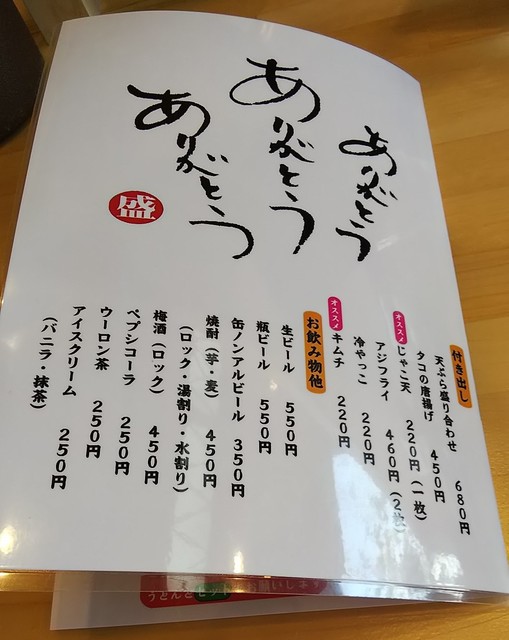 ありがとう
ありがとう
ありがとう
盛
付き出し
天ぷら盛り合わせ 680円
タコの唐揚げ 450円
オススメ
じゃこ天 220円(一枚)
アジフライ 460円(2枚)
冷やっこ 220円
オススメ
キムチ 220円
お飲み物他
生ビール 550円
瓶ビール 550円
缶ノンアルビール 350円
焼酎(芋・麦) 450円
(ロック・湯割り・水割り)
梅酒(ロック) 450円
ペプシコーラ 250円
ウーロン茶 250円
アイスクリーム 250円
(バニラ・抹茶)
うどんとセット